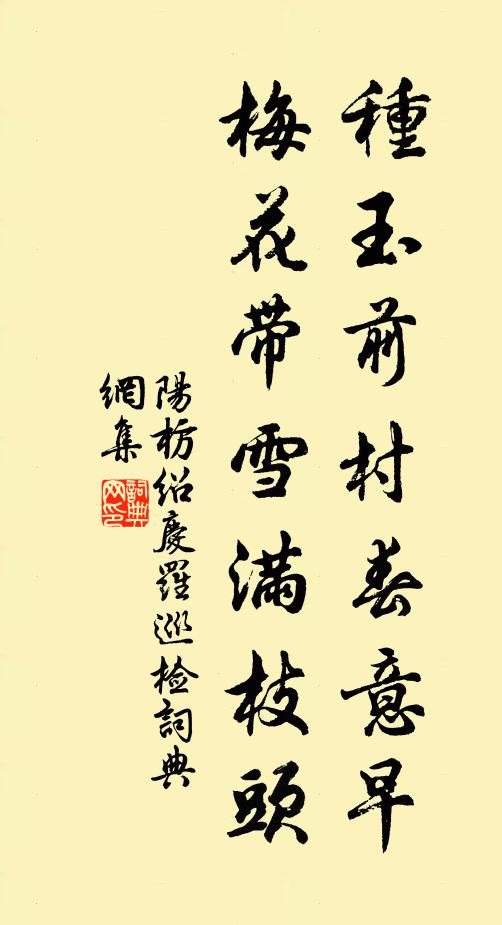 種玉前村春意早
梅花帶雪滿枝頭
陽枋紹慶羅巡檢詞典
網集
詞典
网印